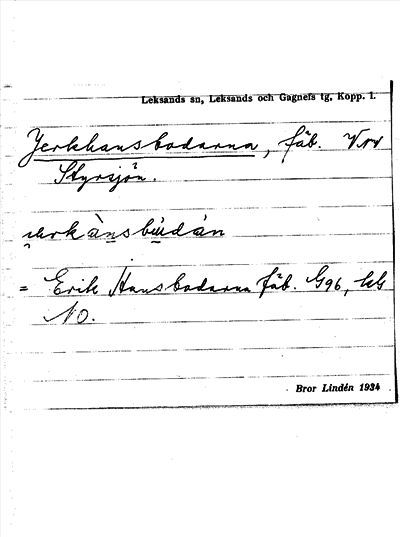 Leksands sn, Leksands och Gagnefs tg, Kopp. l.
Jerkhansbodarna, fäb. V om
Styrsjön.
= Erik Hansbodarna fäb. G96,
NO.
Bror Lindén 1934